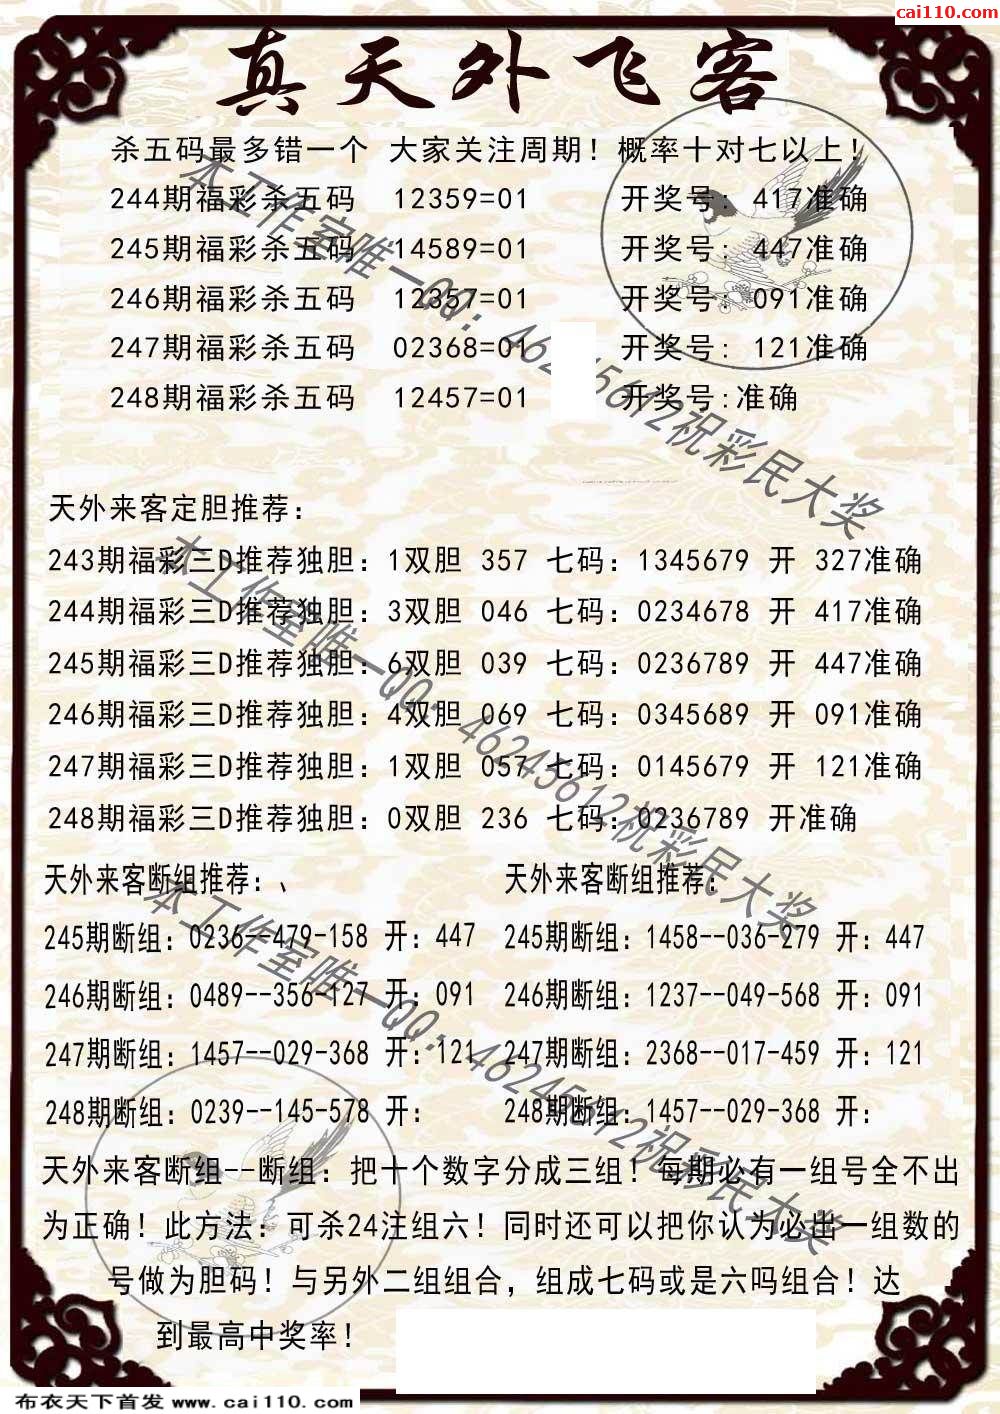 cai110.com
真天外飞客
杀五码最多错一个 大家关注周期! 概率十对七以上!
244期福彩杀五码 12359=01 开奖号: 417准确
245期福彩杀五码 14589=01 开奖号: 447准确
246期福彩杀五码 12357=01 开奖号: 091准确
247期福彩杀五码 02368=01 开奖号: 121准确
248期福彩杀五码 12457=01 开奖号:准确
本工作室唯一QQ: 46245612祝彩民大奖
天外来客定胆推荐:
243期福彩三D推荐独胆: 1双胆 357 七码: 1345679 开 327准确
244期福彩三D推荐独胆: 3双胆 046 七码: 0234678 开 417准确
245期福彩三D推荐独胆: 6双胆 039 七码: 0236789 开 447准确
246期福彩三D推荐独胆: 4双胆 069 七码: 0345689 开 091准确
247期福彩三D推荐独胆: 1双胆 057 七码: 0145679 开 121准确
248期福彩三D推荐独胆: 0双胆 236 七码: 0236789 开准确
本工作室唯一QQ: 46245612祝彩民大奖
天外来客断组推荐: 、 天外来客断组推荐:
245期断组: 0236--479-158 开: 447 245期断组: 1458--036-279 开: 447
246期断组: 0489--356-127 开: 091 246期断组: 1237--049-568 开: 091
247期断组: 1457--029-368 开: 121 247期断组: 2368--017-459 开: 121
248期断组: 0239--145-578 开: 248期断组: 1457--029-368 开:
本工作室唯一QQ: 46245612祝彩民大奖
天外来客断组--断组: 把十个数字分成三组! 每期必有一组号全不出
为正确! 此方法: 可杀24注组六! 同时还可以把你认为必出一组数的
号做为胆码! 与另外二组组合, 组成七码或是六吗组合! 达
到最高中奖率!
布衣天下首发 www.cai110.com